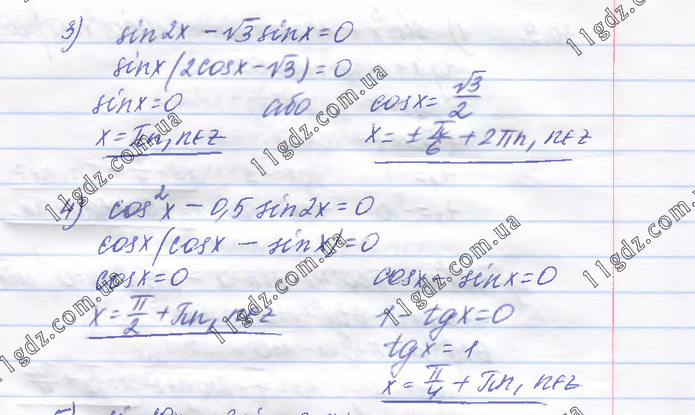 3) sin2x - √3 sinx = 0
sinx(2cosx - √3) = 0
sinx = 0 або cosx = √3/2
x = πn, n∈z x = ± π/6 + 2πn, n∈z
4) cos²x - 0,5 sin2x = 0
cosx(cosx - sinx) = 0
cosx = 0 cosx - sinx = 0
x = π/2 + πn, n∈z 1 - tgx = 0
tgx = 1
x = π/4 + πn, n∈z
11gdz.com.ua
11gdz.com.ua
11gdz.com.ua
11gdz.com.ua
11gdz.com.ua
11gdz.com.ua
11gdz.com.ua